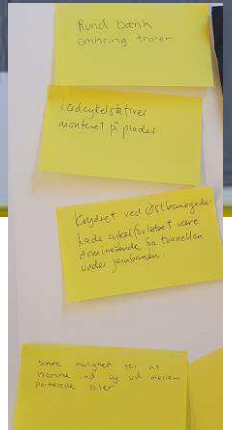 Rund bænk
omkring træer
Ladcykelstativer
monteret på pladser.
Krydset ved Østbanegade.
Lade cykelforløbet være
dominerende fra tunnellen
under jernbanen.
mulighed for at
komme ind og ud mellem
parkerede biler